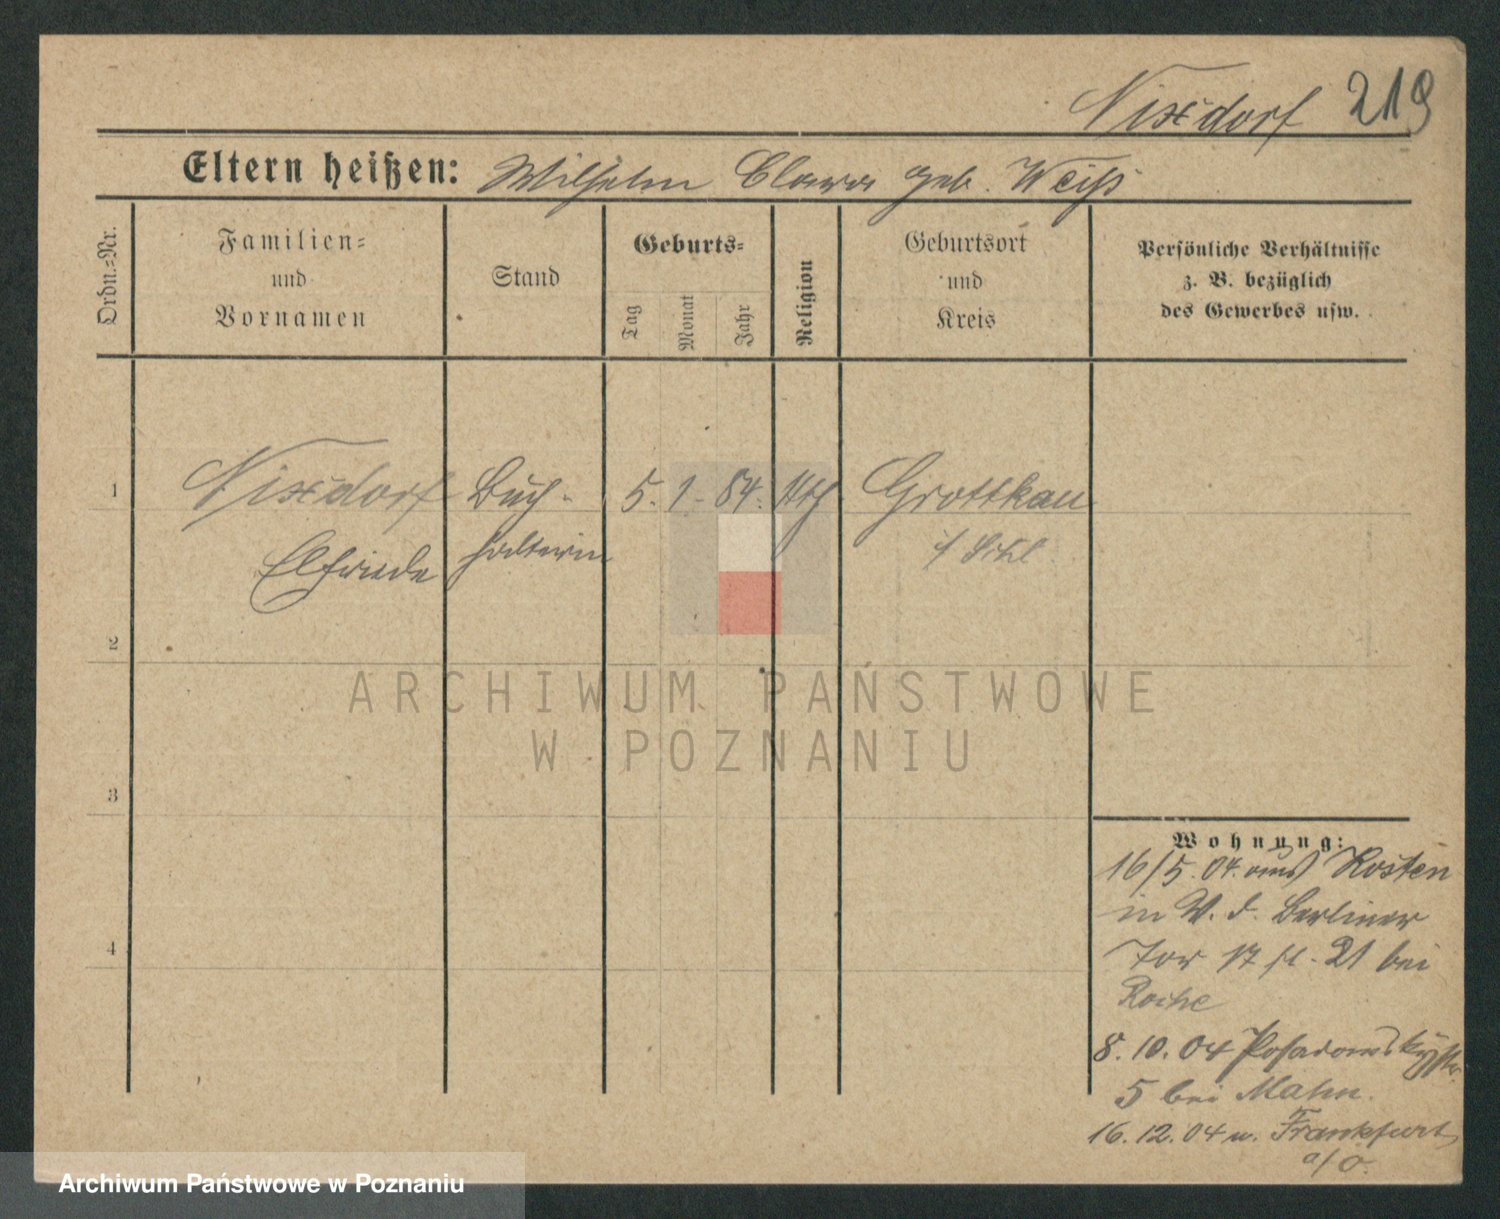 Nixdorf 219
Eltern heißen: Wilhelm Clara geb. Weiß
Ordn.=Nr.
Familien=
und
Vornamen
Stand
Geburts=
Tag
Monat
Jahr
Religion
Geburtsort
und
Kreis
Persönliche Verhältnisse
z. B. bezüglich
des Gewerbes usw.
1 Nixdorf Buch- 5. 1. 84. kth. Grottkau
Elfriede halterin i/ Schl.
2
ARCHIWUM PAŃSTWOWE
W POZNANIU
3
Wohnung:
16/5. 04. aus Kosten
in W. d. Berliner
Tor 17 21 bei
8. 10. 04
5 bei Mahn.
16. 12. 04 n. Frankfurt
a/O.
4
Archiwum Państwowe w Poznaniu